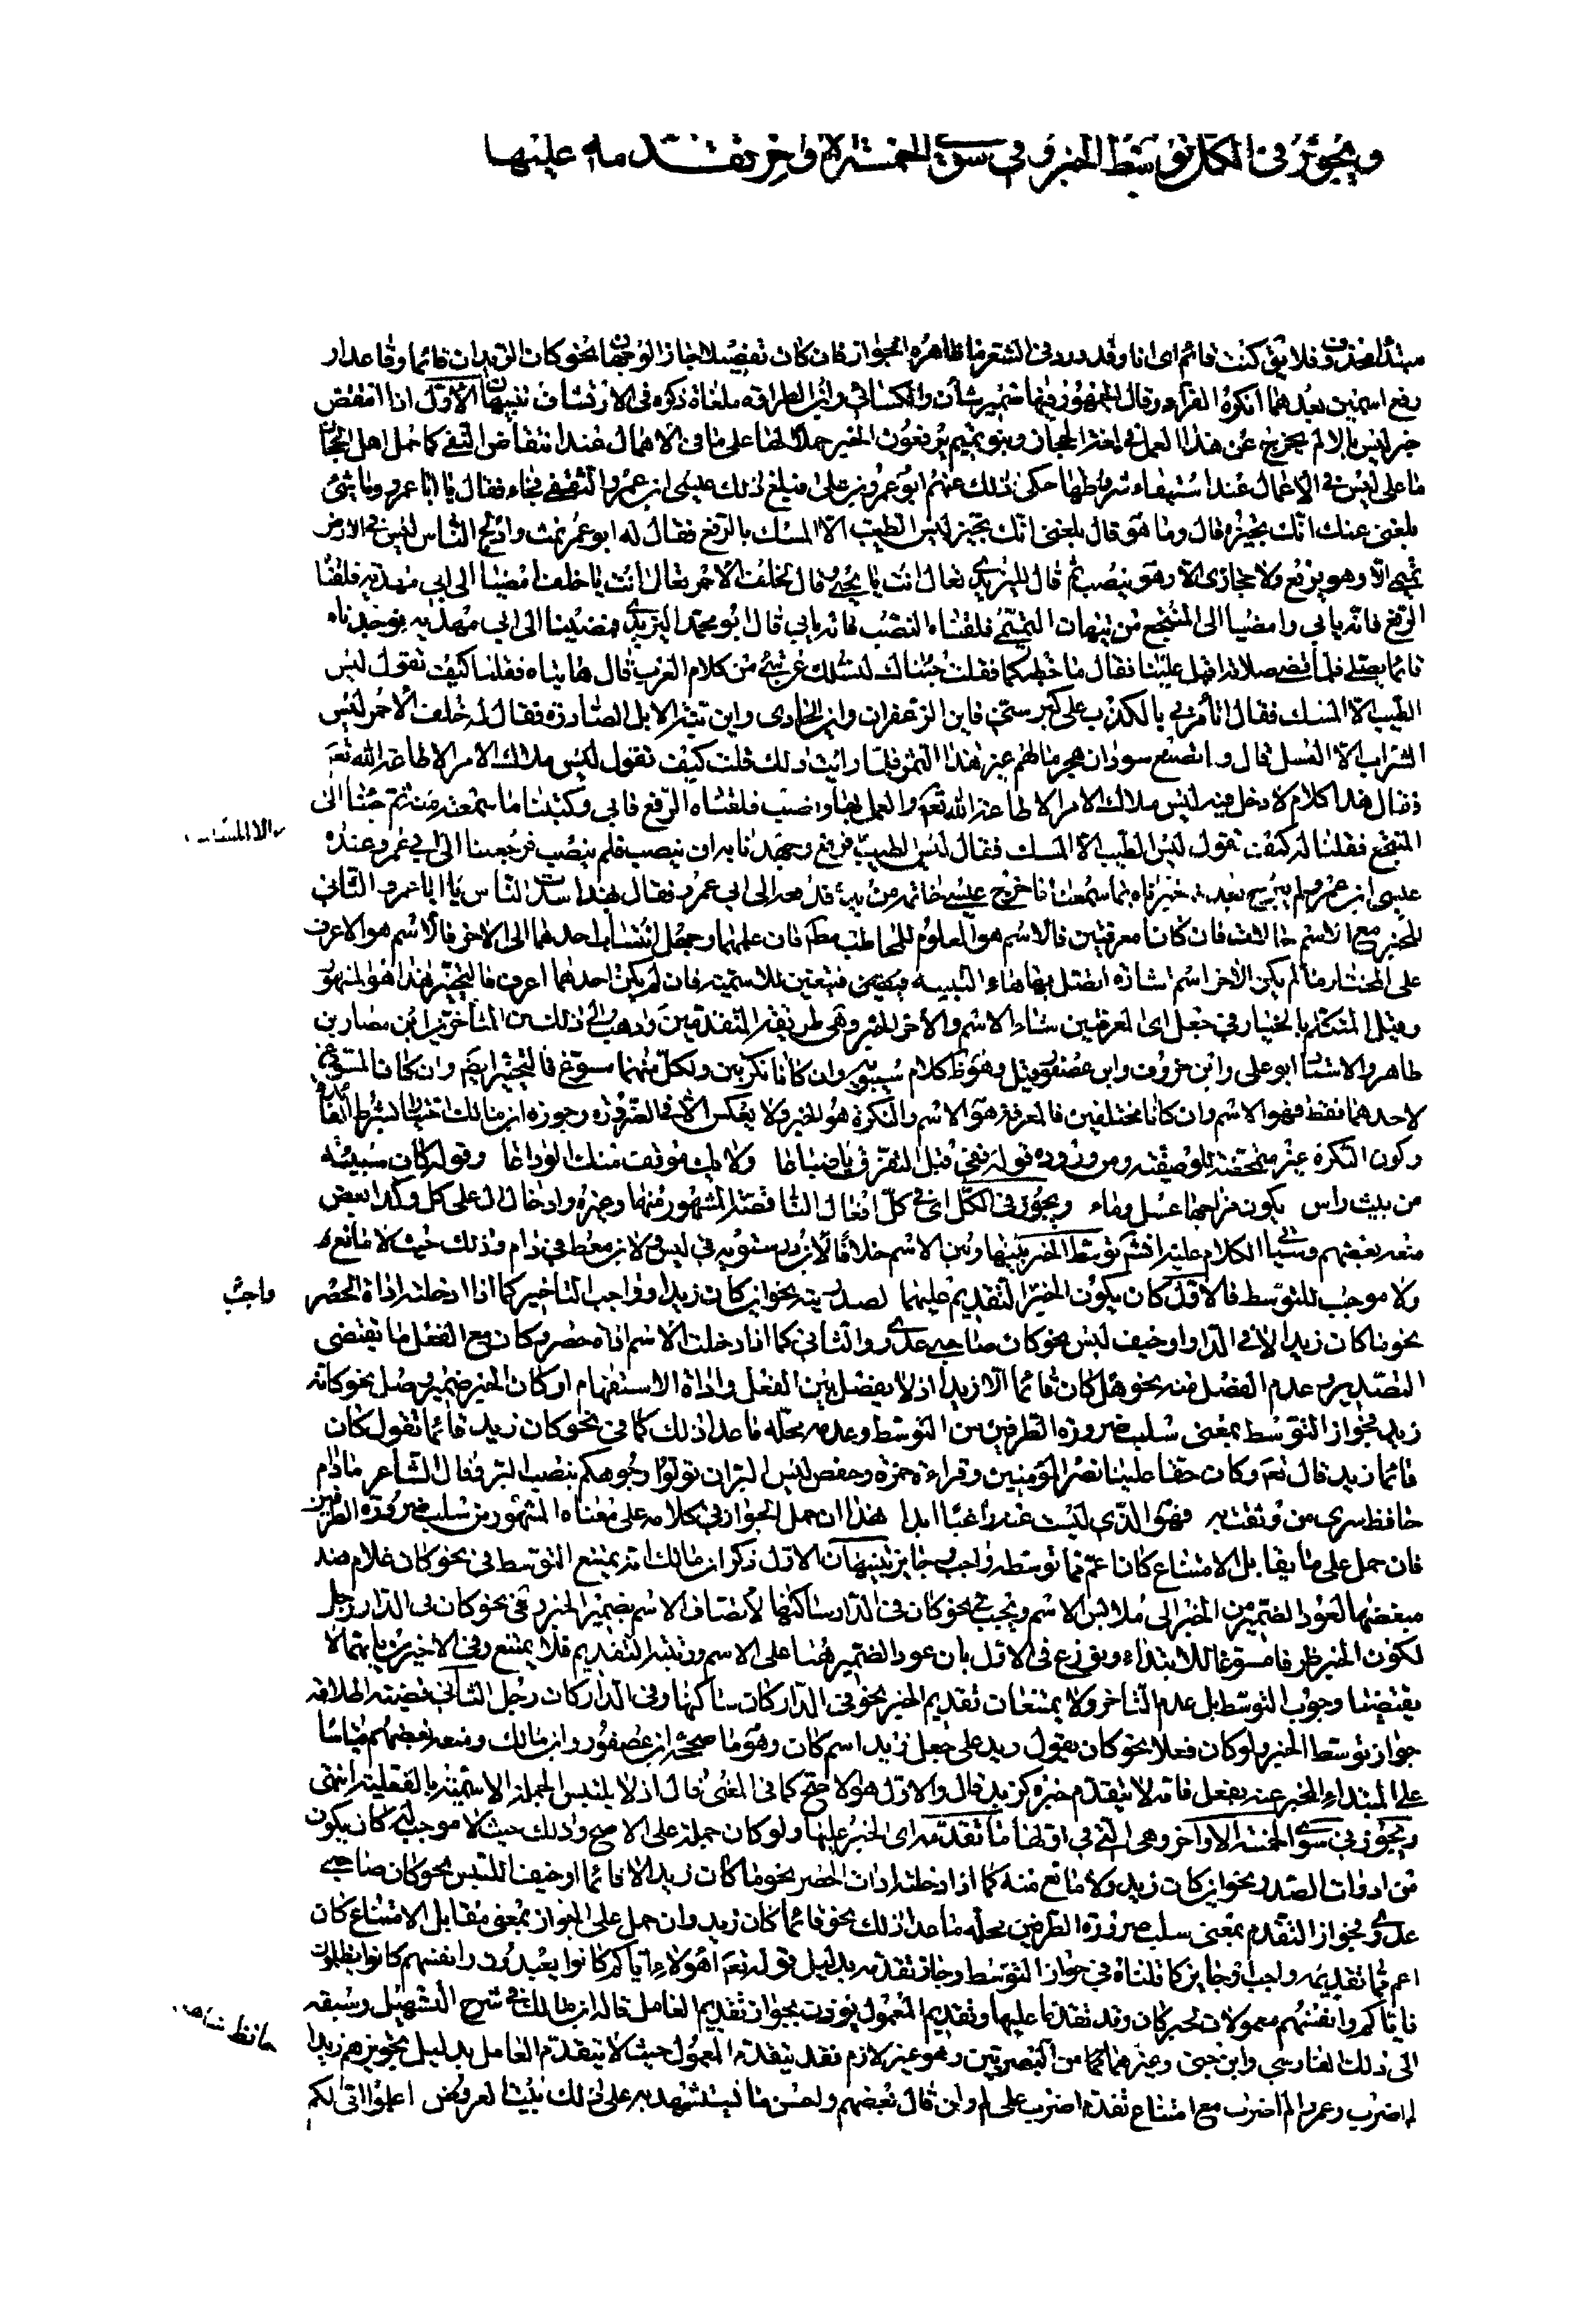 ويجوز في الكل توسط الخبر وفي سوى الخمسة الاواخر تقدمه عليها
مبتدأ محذوف فلا يق كنت قائم اى انا وقد ورد في الشعر ما ظاهره الجواز فان كان تفصيلا جاز الوجهان نحو كان الزيدان قائما وقاعدا و
رفع اسمين بعدهما انكره الفراء وقال الجمهور فيها ضمير شأن والكسائي وابن الطراوة ملغاة ذكره في الارتشاف تنبيهان الاول اذا انتقض
خبر ليس بالا لم يخرج عن هذا العمل في لغة الحجاز وبنو تميم يرفعون الخبر حملا لها على ما في الاهمال عند انتقاض النفي كما حمل اهل الحجاز
ما على ليس في الاعمال عند استيفاء شروطها حكى ذلك عنهم ابو عمرو بن علا فبلغ ذلك عيسى ابن عمرو الثقفي فجاء فقال يا ابا عمرو ما شئ
بلغني عنك انك تجيزه قال وما هو قال بلغني انك تجيز ليس الطيب الا المسك بالرفع فقال له ابو عمرو نمت وادلج الناس ليس في الارض
تميمى الا وهو يرفع ولا حجازى الا وهو ينصب ثم قال لليزيدى تعال انت يا يحيى وقال لخلف الاحمر تعال انت يا خلف امضيا الى ابي مهدية فلقنا
الرفع فانه يابى وامضيا الى المنتجع من نبهان التميمي فلقناه النصب فانه يابى قال ابو محمد اليزيدى فمضينا الى ابي مهدية فوجدناه
قائما يصلي فلما قضى صلاته اقبل علينا فقال ما خطبكما فقلت جئناك لنسئلك عن شئ من كلام العرب قال هاتياه فقلنا كيف تقول ليس
الطيب الا المسك فقال اتأمرني بالكذب على كبر سني فاين الزعفران واين الجادى واين بنة الابل الصادرة فقال له خلف الاحمر ليس
الشراب الا العسل قال و تصنع سودان هجر مالهم غير هذا التمر فلما رايت ذلك قلت كيف تقول ليس ملاك الامر الا طاعة الله تعه
فقال هذا كلام لا دخل فيه ليس ملاك الامر الا طاعة الله تعه والعمل بها ونصب فلقناه الرفع فابى وكتبنا ما سمعنه منه ثم جئنا الى
المنتجع فقلنا له كيف تقول ليس الطيب الا المسك فقال ليس الطيب فرفع وجهدنا به ان ينصب فلم ينصب فرجعنا الى ابي عمرو وعنده
عيسى ابن عمرو لم يبرح بعد فخبرناه بما سمعنا فاخرج عيسى خاتمه من يده فدفعه الى ابي عمرو فقال بهذا سدت الناس يا ابا عمرو الثاني
للخبر مع الاسم حالات فان كانا معرفتين فالاسم هو المعلوم للمخاطب مط فان علمهما وجهل انتساب احدهما الى الاخر فالاسم هو الاعرف
على المختار ما لم يكن الاخر اسم اشارة اتصل بها هاء التنبيه فيتعين للاسمية فان لم يكن احدهما اعرف فالتخيير هذا هو المشهور
وقيل المتكلم بالخيار في جعل اى المعرفتين شاء الاسم والاخر الخبر وهى طريقة المتقدمين وذهب الى ذلك من المتأخرين ابن مضا وابن
طاهر والاستاد ابو على وابن خروف وابن عصفور وقيل وهو ظ كلام سيبويه وان كانا نكرتين ولكل منهما مسوغ فالتخيير ايضم وان كان المسوغ
لاحدهما فقط فهو الاسم وان كانا مختلفين فالمعرفة هو الاسم والنكرة هو الخبر ولا يعكس الا في الضرورة وجوزه ابن مالك اختيارا بشرط الفائدة
وكون النكرة غير محضة للوصفية ومن وروده قوله قفي قبل التفرق يا ضباعا ولا يك موقف منك الوداعا وقوله كان سبيئة
من بيت راس يكون مزاجها عسل وماء ويجوز في الكل اى في كل افعال الناقصة المشهور منها وغيره وادخال ال على كل وكذا بعض
منعه بعضهم وسيأتي الكلام عليه انشم توسط الخبر بينها وبين الاسم خلافا لابن درستويه في ليس ولابن معط في دام وذلك حيث لا مانع
ولا موجب للتوسط فالاول كان يكون الخبر واجب التقديم عليهما لصدريته نحو اين كان زيد او واجب التاخير كما اذا ادخلته اداة الحصر
نحو ما كان زيد الا في الدار او خيف لبس نحو كان صاحبي عدوى والثاني كما اذا دخلت الاسم اداة حصر وكان مع الفعل ما يقتضى
التصدير وعدم الفصل منه نحو هل كان قائما الا زيد اذ لا يفصل بين الفعل واداة الاستفهام او كان الخبر ضمير وصل نحو كانه
زيد فجواز التوسط بمعنى سلب ضرورة الطرفين من التوسط وعدمه محله ما عدا ذلك كما في نحو كان زيد قائما تقول كان
قائما زيد قال تعه وكان حقا علينا نصر المؤمنين وقراءة حمزة وحفص ليس البر ان تولوا وجوهكم بنصب البر وقال الشاعر مادام
حافظ سرى من وثقت به فهو الذى لست عنه راغبا ابدا هذا ان حمل الجواز في كلامه على معناه المشهور من سلب ضرورة الطرفين
فان حمل على ما يقابل الامتناع كان اعم فما توسطه واجب وجايز تنبيهان الاول ذكر ابن مالك انه يمتنع التوسط في نحو كان غلام هند
مبغضها لعود الضمير من الخبر الى ملابس الاسم ويجب في نحو كان في الدار ساكنها لاتصاف الاسم بضمير الخبر وفي نحو كان في الدار رجل
لكون الخبر ظرفا مسوغا للابتداء ونوزع في الاول بان عود الضمير هنا على الاسم ورتبته التقديم فلا يمتنع وفي الاخيرين بانهما لا
يقتضيا وجوب التوسط بل عدم التأخر ولا يمتنعان تقديم الخبر نحو في الدار كان ساكنها وفي الدار كان رجل الثاني قضية اطلاقه
جواز توسط الخبر ولو كان فعلا نحو كان يقول زيد على جعل زيد اسم كان وهو ما صححه ابن عصفور وابن مالك ومنعه بعضهم قياسا
على المبتداء المخبر عنه بفعل فانه لا يتقدم خبره كزيد قال والاول هو الاصح كما في المغنى قال اذ لا يلتبس الجملة الاسمية بالفعلية انتهى
ويجوز في سوى الخمسة الاواخر وهى التي في اولها ما تقدمه اى الخبر عليها ولو كان جملة على الاصح وذلك حيث لا موجب له كان يكون
من ادوات الصدر نحو اين كان زيد ولا مانع منه كما اذا دخلته ادات الحصر نحو ما كان زيد الا قائما او خيف اللبس نحو كان صاحبي
عدوى فجواز التقدم بمعنى سلب ضرورة الطرفين محله ما عدا ذلك نحو قائما كان زيد وان حمل على الجواز بمعنى مقابل الامتناع كان
اعم فما تقديمه واجب وجايز كما قلناه في جواز التوسط وجاز تقدمه بدليل قوله تعه اهؤلاء اياكم كانوا يعبدون وانفسهم كانوا يظلمون
فاياكم وانفسهم معمولات لخبر كان وقد تقدما عليها وتقديم المعمول يؤذن بجواز تقديم العامل قاله ابن مالك في شرح التسهيل وسبقه
الى ذلك الفارسي وابن جني وغيرهما من البصريين وهو غير لازم فقد يتقدم المعمول حيث لا يتقدم العامل بدليل تجويزهم زيدا
لم اضرب وعمرا لم اضرب مع امتناع تقدم اضرب على لم وابن قال بعضهم واحسن ما يستشهد به على ذلك بيت العروض اعلموا اني لكم
واجب